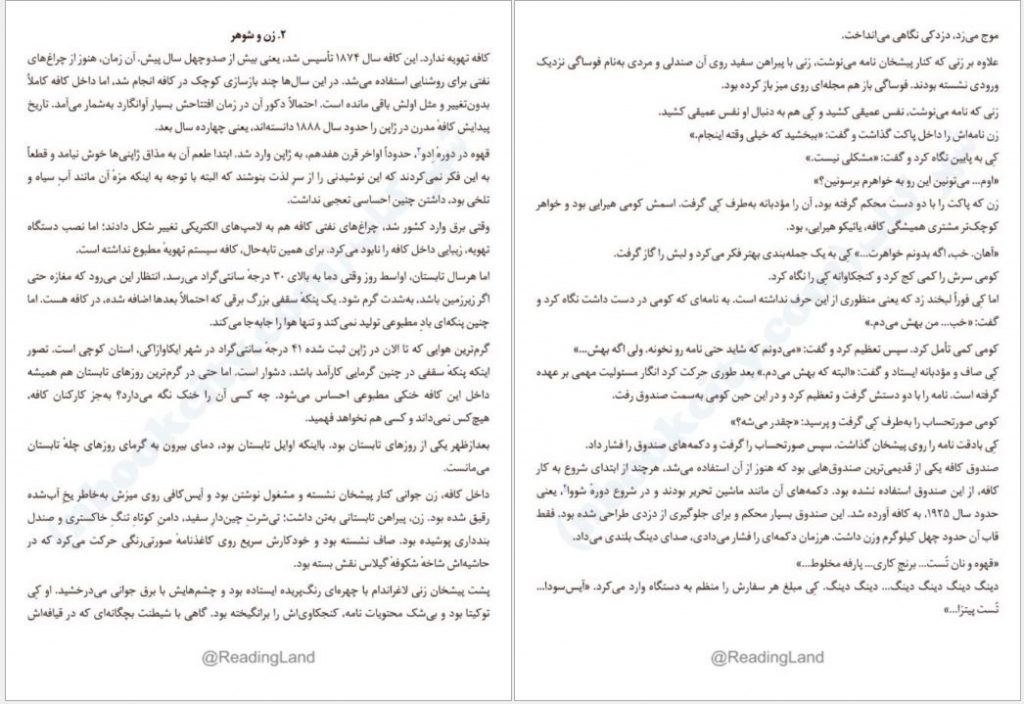 ۲. زن و شوهر
کافه تهویه ندارد. این کافه سال ۱۸۷۴ تأسیس شد، یعنی بیش از صدوچهل سال پیش. آن زمان، هنوز از چراغ‌های
نفتی برای روشنایی استفاده می‌شد. در این سال‌ها چند بازسازی کوچک در کافه انجام شد، اما داخل کافه کاملاً
بدون‌تغییر و مثل اولش باقی مانده است. احتمالاً دکور آن در زمان افتتاحش بسیار آوانگارد به‌شمار می‌آمد. تاریخ
پیدایش کافهٔ مدرن در ژاپن را حدود سال ۱۸۸۸ دانسته‌اند، یعنی چهارده سال بعد.
قهوه در دورهٔ اِدو۲، حدوداً اواخر قرن هفدهم، به ژاپن وارد شد. ابتدا طعم آن به مذاق ژاپنی‌ها خوش نیامد و قطعاً
به این فکر نمی‌کردند که این نوشیدنی را از سرِ لذت بنوشند که البته با توجه به اینکه مزهٔ آن مانند آبِ سیاه و
تلخی بود، داشتن چنین احساسی تعجبی نداشت.
وقتی برق وارد کشور شد، چراغ‌های نفتی کافه هم به لامپ‌های الکتریکی تغییر شکل دادند؛ اما نصب دستگاه
تهویه، زیبایی داخل کافه را نابود می‌کرد. برای همین تابه‌حال، کافه سیستم تهویهٔ مطبوع نداشته است.
اما هرسال تابستان، اواسط روز وقتی دما به بالای ۳۰ درجهٔ سانتی‌گراد می‌رسد، انتظار این می‌رود که مغازه حتی
اگر زیرزمین باشد، به‌شدت گرم شود. یک پنکهٔ سقفی بزرگ برقی که احتمالاً بعدها اضافه شده، در کافه هست. اما
چنین پنکه‌ای بادِ مطبوعی تولید نمی‌کند و تنها هوا را جابه‌جا می‌کند.
گرم‌ترین هوایی که تا الان در ژاپن ثبت شده ۴۱ درجهٔ سانتی‌گراد در شهر ایکاوازاکی، استان کوچی است. تصور
اینکه پنکهٔ سقفی در چنین گرمایی کارآمد باشد، دشوار است. اما حتی در گرم‌ترین روزهای تابستان هم همیشه
داخل این کافه خنکی مطبوعی احساس می‌شود. چه کسی آن را خنک نگه می‌دارد؟ به‌جز کارکنان کافه،
هیچ‌کس نمی‌داند و کسی هم نخواهد فهمید.
بعدازظهر یکی از روزهای تابستان بود. بااینکه اوایل تابستان بود، دمای بیرون به گرمای روزهای چلهٔ تابستان
می‌مانست.
داخل کافه، زن جوانی کنار پیشخان نشسته و مشغول نوشتن بود و آیس‌کافی روی میزش به‌خاطر یخ آب‌شده
رقیق شده بود. زن، پیراهن تابستانی به‌تن داشت؛ تی‌شرتِ چین‌دارِ سفید، دامنِ کوتاهِ تنگِ خاکستری و صندل
بندداری پوشیده بود. صاف نشسته بود و خودکارش سریع روی کاغذنامهٔ صورتی‌رنگی حرکت می‌کرد که در
حاشیه‌اش شاخهٔ شکوفهٔ گیلاس نقش بسته بود.
پشت پیشخان زنی لاغراندام با چهره‌ای رنگ‌پریده ایستاده بود و چشم‌هایش با برق جوانی می‌درخشید. او کِی
توکیتا بود و بی‌شک محتویات نامه، کنجکاوی‌اش را برانگیخته بود. گاهی با شیطنت بچگانه‌ای که در قیافه‌اش
@ReadingLand
موج می‌زد، دزدکی نگاهی می‌انداخت.
علاوه بر زنی که کنار پیشخان نامه می‌نوشت، زنی با پیراهن سفید روی آن صندلی و مردی به‌نام فوساگی نزدیک
ورودی نشسته بودند. فوساگی باز هم مجله‌ای روی میز باز کرده بود.
زنی که نامه می‌نوشت، نفس عمیقی کشید و کِی هم به دنبال او نفس عمیقی کشید.
زن نامه‌اش را داخل پاکت گذاشت و گفت: «ببخشید که خیلی وقته اینجام.»
کِی به پایین نگاه کرد و گفت: «مشکلی نیست.»
«اوم... می‌تونین این رو به خواهرم برسونین؟»
زن که پاکت را با دو دست محکم گرفته بود، آن را مؤدبانه به‌طرف کِی گرفت. اسمش کومی هیرایی بود و خواهر
کوچک‌تر مشتری همیشگی کافه، یائیکو هیرایی، بود.
«آهان. خب، اگه بدونم خواهرت...» کِی به یک جمله‌بندی بهتر فکر می‌کرد و لبش را گاز گرفت.
کومی سرش را کمی کج کرد و کنجکاوانه کِی را نگاه کرد.
اما کِی فوراً لبخند زد که یعنی منظوری از این حرف نداشته است. به نامه‌ای که کومی در دست داشت نگاه کرد و
گفت: «خب... من بهش می‌دم.»
کومی کمی تأمل کرد. سپس تعظیم کرد و گفت: «می‌دونم که شاید حتی نامه رو نخونه. ولی اگه بهش...»
کِی صاف و مؤدبانه ایستاد و گفت: «البته که بهش می‌دم.» بعد طوری حرکت کرد انگار مسئولیت مهمی بر عهده
گرفته است. نامه را با دو دستش گرفت و تعظیم کرد و در این حین کومی به‌سمت صندوق رفت.
کومی صورتحساب را به‌طرف کِی گرفت و پرسید: «چقدر می‌شه؟»
کِی بادقت نامه را روی پیشخان گذاشت. سپس صورتحساب را گرفت و دکمه‌های صندوق را فشار داد.
صندوق کافه یکی از قدیمی‌ترین صندوق‌هایی بود که هنوز از آن استفاده می‌شد، هرچند از ابتدای شروع به کار
کافه، از این صندوق استفاده نشده بود. دکمه‌های آن مانند ماشین تحریر بودند و در شروع دورهٔ شووا۳، یعنی
حدود سال ۱۹۲۵، به کافه آورده شد. این صندوق بسیار محکم و برای جلوگیری از دزدی طراحی شده بود. فقط
قاب آن حدود چهل کیلوگرم وزن داشت. هرزمان دکمه‌ای را فشار می‌دادی، صدای دینگ بلندی می‌داد.
«قهوه و نان تُست... برنج کاری... پارفه مخلوط...»
دینگ دینگ دینگ دینگ... دینگ دینگ. کِی مبلغ هر سفارش را منظم به دستگاه وارد می‌کرد. «آیس‌سودا...
تُست پیتزا...»
@ReadingLand